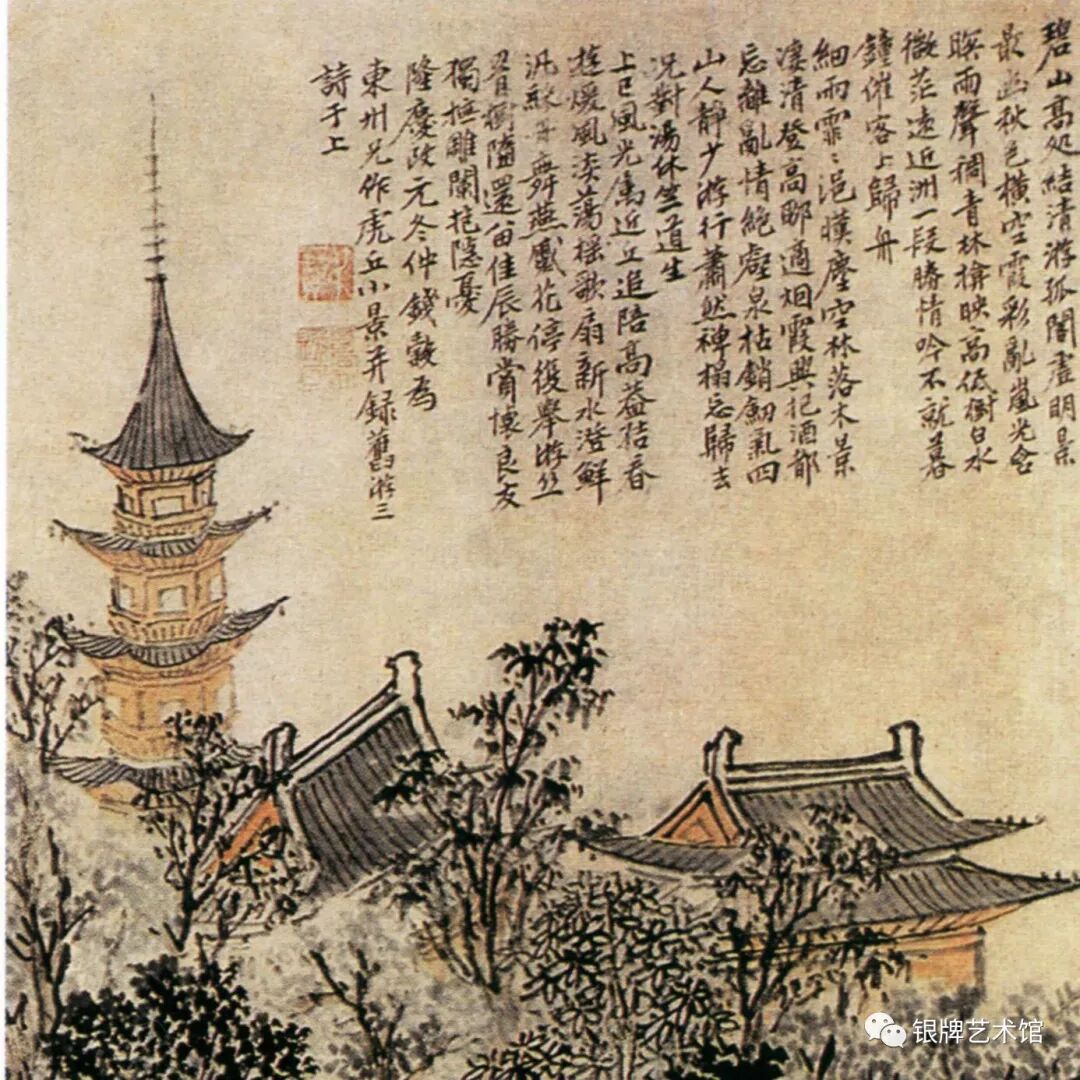 碧山高处结清游孤閣虛明景
最幽秋色橫空霞彩亂嵐光含
暝雨聲稠青林掩映高低樹白水
微茫遠近洲一段勝情吟不就暮
鐘催客上歸舟
細雨霏〻浥模塵空林落木景
淒清登高眺適烟霞興把酒都
忘離亂情絕壑泉枯銷劒氣四
山人靜少游行蕭然禪榻忘歸去
况對湯休竺道生
上巳風光萬近丘追陪高蓋結春
遊煖風淡蕩搖歌扇新水澄鮮
汎綵舟舞燕戲花停復舉游丝
樹隨還留佳辰勝賞懷良友
獨撫雕闌抱隱憂
隆慶改元冬仲錢穀為
東州兄作虎丘小景并錄舊游三
詩于上
银牌艺术馆